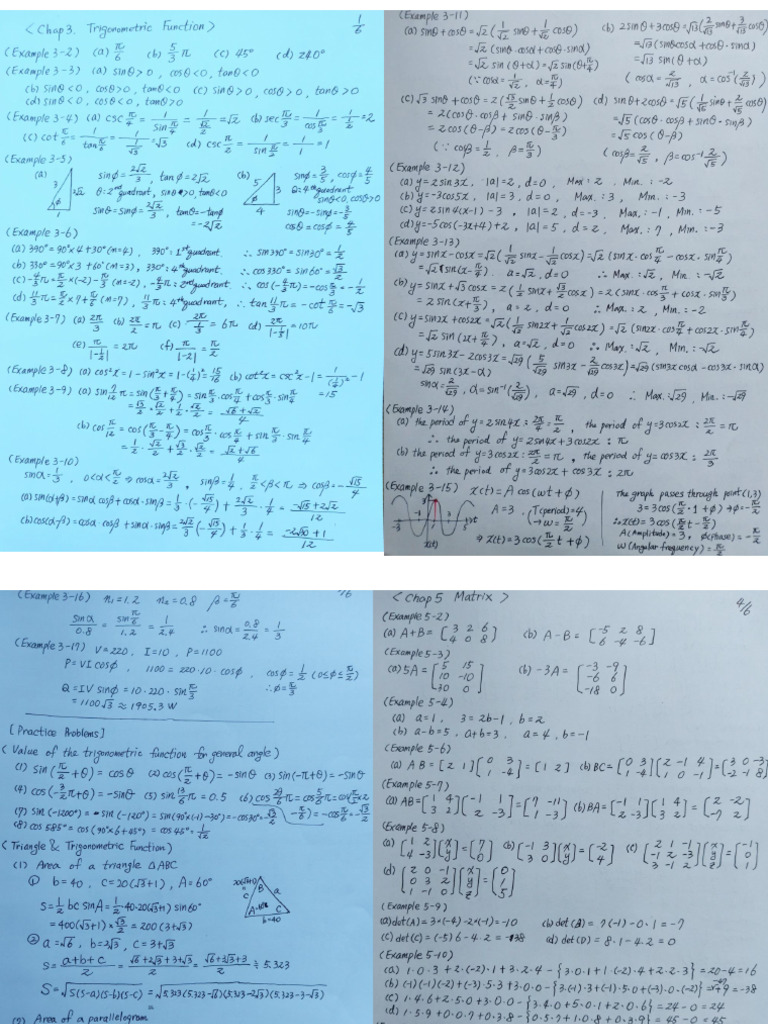 < Chap3. Trigonometric Function > 1/6
(Example 3-2) (a) π/6 (b) 5/3 π (c) 45° (d) 240°
(Example 3-3) (a) sinθ>0, cosθ<0, tanθ<0
(b) sinθ<0, cosθ>0, tanθ<0 (c) sinθ>0, cosθ>0, tanθ>0
(d) sinθ<0, cosθ<0, tanθ>0
(Example 3-4) (a) csc π/4 = 1/sin π/4 = 1/(1/√2) = √2 (b) sec π/3 = 1/cos π/3 = 1/(1/2) = 2
(c) cot π/6 = 1/tan π/6 = 1/(1/√3) = √3 (d) csc π/2 = 1/sin π/2 = 1/1 = 1
(Example 3-5)
(a) sinφ = 2√2/3, tanφ = 2√2 (b) sinφ = 3/5, cosφ = 4/5
θ: 2nd quadrant, sinθ>0, tanθ<0 θ: 4th quadrant sinθ<0, cosθ>0
sinθ = sinφ = 2√2/3, tanθ = -tanφ = -2√2 sinθ = -sinφ = -3/5
cosθ = cosφ = 4/5
(Example 3-6)
(a) 390° = 90°×4+30° (n=4), 390° = 1st quadrant, ∴ sin390° = sin30° = 1/2
(b) 330° = 90°×3+60° (n=3), 330°: 4th quadrant, ∴ cos330° = sin60° = √3/2
(Example 3-7) (a) 2π/3 (b) 2π/2 = π (d) 10π
(e) π/|-1/2| = 2π (f) π/|-2| = π/2
(Example 3-8) (a) cos²x = 1-sin²x = 1-(1/4)² = 15/16 (b) cot²x = csc²x-1 = 1/(1/4)² -1 = 15
(Example 3-9) (a) sin 7/12 π = sin(π/3+π/4) = sin π/3 · cos π/4 + cos π/3 · sin π/4
= √3/2 × √2/2 + 1/2 × √2/2 = (√6+√2)/4
(b) cos π/12 = cos(π/3-π/4) = cos π/3 · cos π/4 + sin π/3 · sin π/4
= 1/2 · √2/2 + √3/2 · √2/2 = (√2+√6)/4
(Example 3-10)
sinα = 1/3, 0<α<π/2 ⇒ cosα = 2√2/3, sinβ = 1/4, π/2<β<π ⇒ cosβ = -√15/4
(a) sin(α+β) = sinα cosβ + cosα·sinβ = 1/3·(-√15/4) + 2√2/3 · 1/4 = (-√15+2√2)/12
(b) cos(α-β) = cosα·cosβ + sinα·sinβ = 2√2/3 (-√15/4) + 1/3 · 1/4 = (-2√30+1)/12
(Example 3-11)
(a) sinθ+cosθ = √2(1/√2 sinθ + 1/√2 cosθ) (b) 2sinθ+3cosθ = √13(2/√13 sinθ + 3/√13 cosθ)
= √2(sinθ·cosα+cosθ·sinα) = √13(sinθcosα+cosθ·sinα)
= √2 sin(θ+α) = √2 sin(θ+π/4) = √13 sin(θ+α)
(∵ cosα = 1/√2, α = π/4) (cosα = 2/√13, α = cos⁻¹(2/√13))
(c) √3 sinθ+cosθ = 2(√3/2 sinθ + 1/2 cosθ) (d) sinθ+2cosθ = √5(1/√5 sinθ + 2/√5 cosθ)
= 2(cosθ·cosβ+sinθ·sinβ) = √5(cosθ·cosβ+sinθ·sinβ)
= 2cos(θ-β) = 2cos(θ-π/3) = √5 cos(θ-β)
(∵ cosβ = 1/2, β = π/3) (cosβ = 2/√5, β = cos⁻¹ 2/√5)
(Example 3-12)
(a) y = 2sin3x, |a|=2, d=0, Max: 2, Min.: -2
(b) y = -3cos5x, |a|=3, d=0, Max.: 3, Min.: -3
(c) y = 2sin4(x-1)-3, |a|=2, d=-3, Max.: -1, Min.: -5
(d) y = -5cos(-3x+4)+2, |a|=5, d=2, Max.: 7, Min.: -3
(Example 3-13)
(a) y = sinx-cosx = √2(1/√2 sinx - 1/√2 cosx) = √2(sinx·cos π/4 - cosx·sin π/4)
= √2 sin(x-π/4). a=√2, d=0 ∴ Max.: √2, Min.: -√2
(b) y = sinx+√3cosx = 2(1/2 sinx + √3/2 cosx) = 2(sinx·cos π/3 + cosx·sin π/3)
= 2sin(x+π/3), a=2, d=0 ∴ Max.: 2, Min.: -2
(c) y = sin2x+cos2x = √2(1/√2 sin2x + 1/√2 cos2x) = √2(sin2x·cos π/4 + cos2x·sin π/4)
= √2 sin(2x+π/4), a=√2, d=0 ∴ Max.: √2, Min.: -√2
(d) y = 5sin3x-2cos3x = √29(5/√29 sin3x - 2/√29 cos3x) = √29(sin3x cosα-cos3x·sinα)
= √29 sin(3x-α)
sinα = 2/√29, α = sin⁻¹(2/√29), a=√29, d=0 ∴ Max.: √29, Min.: -√29
(Example 3-14)
(a) the period of y=2sin4x: 2π/4 = π/2, the period of y=3cos2x: 2π/2 = π
∴ the period of y=2sin4x+3cos2x: π
(b) the period of y=3cos2x: 2π/2 = π, the period of y=cos3x: 2π/3
∴ the period of y=3cos2x+cos3x: 2π
(Example 3-15) x(t) = A cos(ωt+φ) The graph passes through point (1,3)
A=3, T(period)=4 3 = 3cos(π/2·1+φ) → φ=-π/2
→ ω=π/2 ∴ x(t) = 3cos(π/2 t - π/2)
⇒ x(t) = 3cos(π/2 t + φ) A(Amplitude)=3, φ(Phase)=-π/2
ω(Angular frequency)=π/2
(Example 3-16) n₁=1.2 n₂=0.8 β=π/6
sinα/0.8 = sin π/6 /1.2 = 1/2.4 ∴ sinα = 0.8/2.4 = 1/3
(Example 3-17) V=220, I=10, P=1100
P=VI cosφ, 1100=220·10·cosφ, cosφ=1/2 (0≤φ≤π/2)
∴φ=π/3
Q = IV sinφ = 10·220·sin π/3
= 1100√3 ≈ 1905.3 W
[Practice Problems]
< Value of the trigonometric function for general angle >
(1) sin(π/2+θ) = cosθ (2) cos(π/2+θ) = -sinθ (3) sin(-π+θ) = -sinθ
(4) cos(-3/2 π+θ) = -sinθ (5) sin 13/6 π = 0.5
(7) sin(-1200°) = sin(-120°) = sin(90°×(-1)-30°) = -cos30° = -√3/2
(8) cos585° = cos(90°×6+45°) = cos45° = 1/√2
< Triangle & Trigonometric Function >
(1) Area of a triangle △ABC
① b=40, c=20(√3+1), A=60°
S = 1/2 bc sinA = 1/2·40·20(√3+1) sin60°
= 400(√3+1)×√3/2 = 200(3+√3)
② a=√6, b=2√3, c=3+√3
S = (a+b+c)/2 = (√6+2√3+3+√3)/2 = (√6+3√3+3)/2 ≒ 5.323
S = √(S(S-a)(S-b)(S-c)) = √(5.323(5.323-√6)(5.323-2√3)(5.323-3-√3))
(2) Area of a parallelogram
< Chap 5 Matrix > 4/6
(Example 5-2)
(a) A+B = [3 2 6; 4 0 8] (b) A-B = [-5 2 8; 6 -4 -6]
(Example 5-3)
(a) 5A = [5 15; 10 -10; 30 0] (b) -3A = [-3 -9; -6 6; -18 0]
(Example 5-4)
(a) a=1, 3=2b-1, b=2
(b) a-b=5, a+b=3, a=4, b=-1
(Example 5-6)
(a) AB = [2 1][0 3; 1 -4] = [1 2] (b) BC = [0 3; 1 -4][2 -1 4; 1 0 -1] = [3 0 -3; -2 -1 8]
(Example 5-7)
(a) AB = [1 4; 3 2][-1 1; 2 -3] = [7 -11; 1 -3] (b) BA = [-1 1; 2 -3][1 4; 3 2] = [2 -2; -7 2]
(Example 5-8)
(a) [1 2; 4 -3][x; y] = [7; 0] (b) [-1 3; 3 0][x; y] = [-2; 4] (c) [2 1 -1; -1 2 1; 3 -1 2][x; y; z] = [-1; 0; 1]
(d) [2 0 -1; 0 3 2; 1 -1 0][x; y; z] = [0; 1; 5]
(Example 5-9)
(a) det(A) = 3×(-4)-2×(-1) = -10 (b) det(B) = 7(-1)-0·1 = -7
(c) det(C) = (-5)6-4·2 = -38 (d) det(D) = 8·1-4·2 = 0
(Example 5-10)
(a) 1·0·3+2·(-2)·1+3·2·4-{3·0·1+1·(-2)·4+2·2·3} = 20-4 = 16
(c) 1·4·6+2·5·0+3·0·0-{3·4·0+5·0·1+2·0·6} = 24-0 = 24
(d) 1·5·9+0·0·7+0·3·8-{0·5·7+1·0·8+0·3·9} = 45-0 = 45